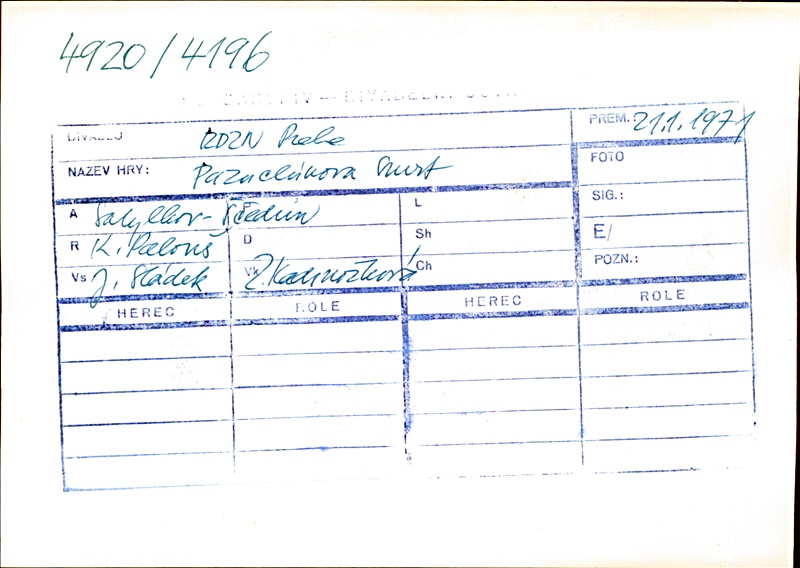 4920/4196
DIVADLO RDZN Praha PREM.: 21.1.1971
NÁZEV HRY: Pazuchinova Smrt FOTO
A Saltykov-Ščedrin L SIG.:
R K. Palouš D Sh E/
Vs J. Sládek Vk Z. Kadrnožková Ch POZN.:
HEREC ROLE HEREC ROLE